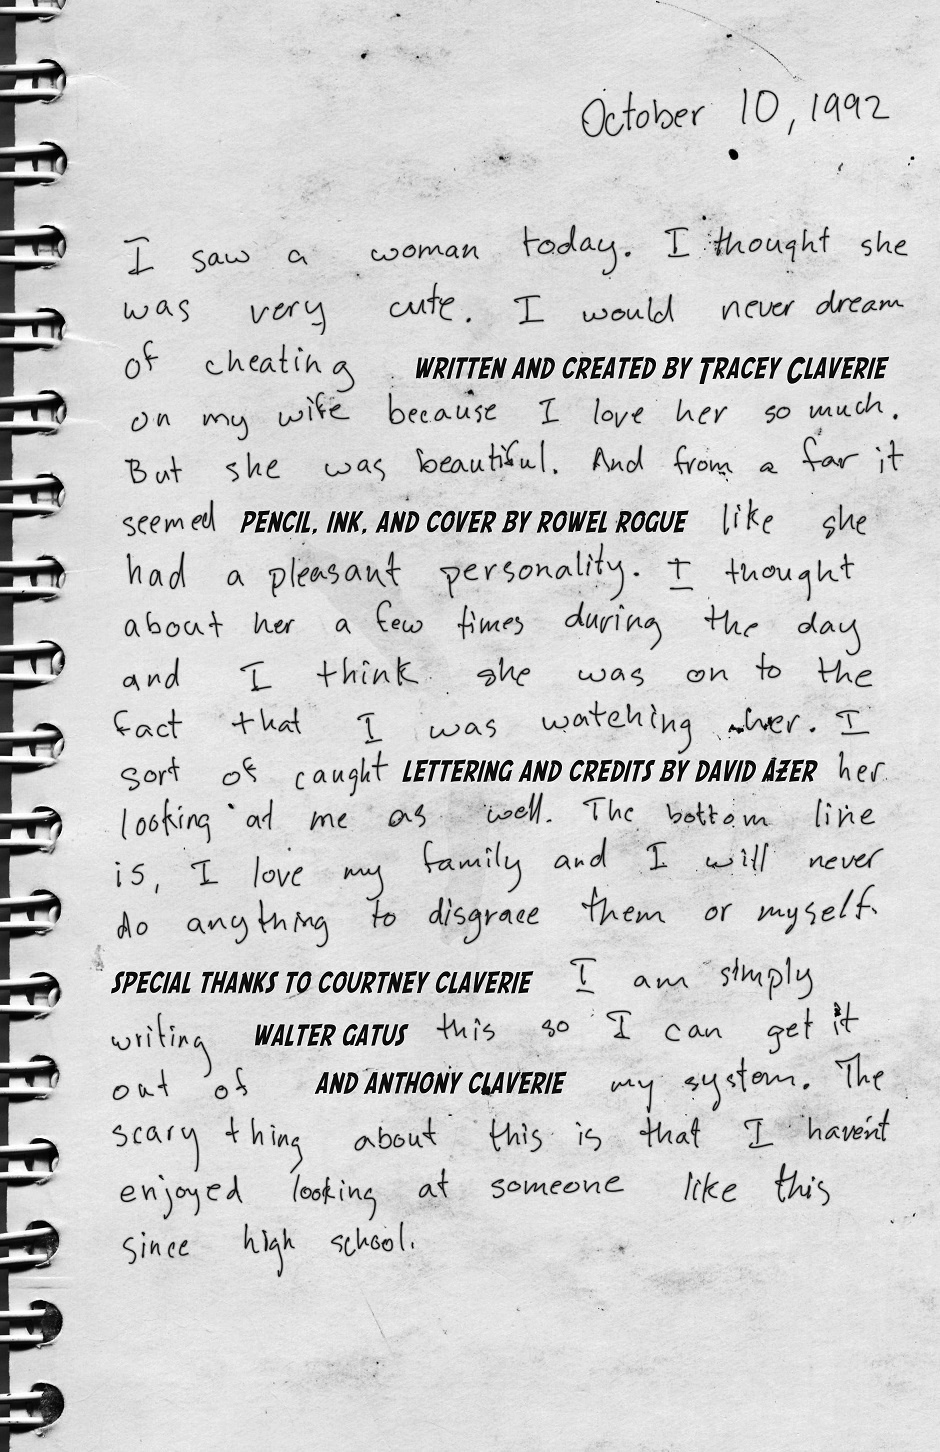 October 10, 1992
I saw a woman today. I thought she
was very cute. I would never dream
of cheating WRITTEN AND CREATED BY TRACEY CLAVERIE
on my wife because I love her so much.
But she was beautiful. And from a far it
seemed PENCIL, INK, AND COVER BY ROWEL ROGUE like she
had a pleasant personality. I thought
about her a few times during the day
and I think she was on to the
fact that I was watching her. I
sort of caught LETTERING AND CREDITS BY DAVID AZER her
looking at me as well. The bottom line
is, I love my family and I will never
do anything to disgrace them or myself.
SPECIAL THANKS TO COURTNEY CLAVERIE I am simply
writing WALTER GATUS this so I can get it
out of AND ANTHONY CLAVERIE my system. The
scary thing about this is that I haven't
enjoyed looking at someone like this
since high school.